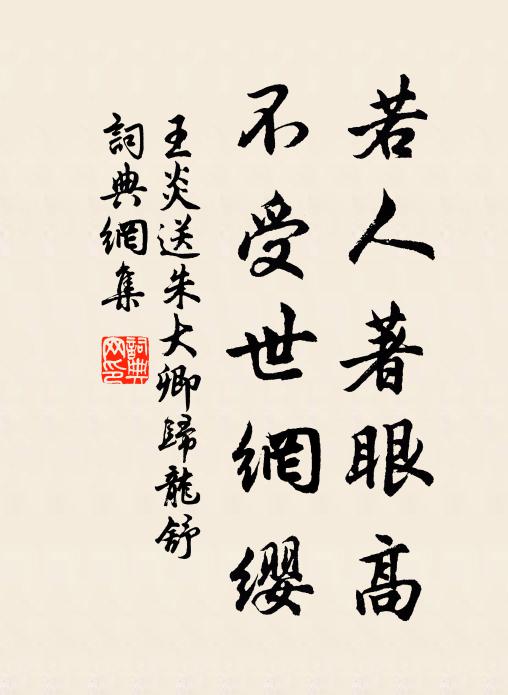 若人著眼高
不受世網纓
王炎送朱大卿歸龍舒
詞典網集
詞典
网印